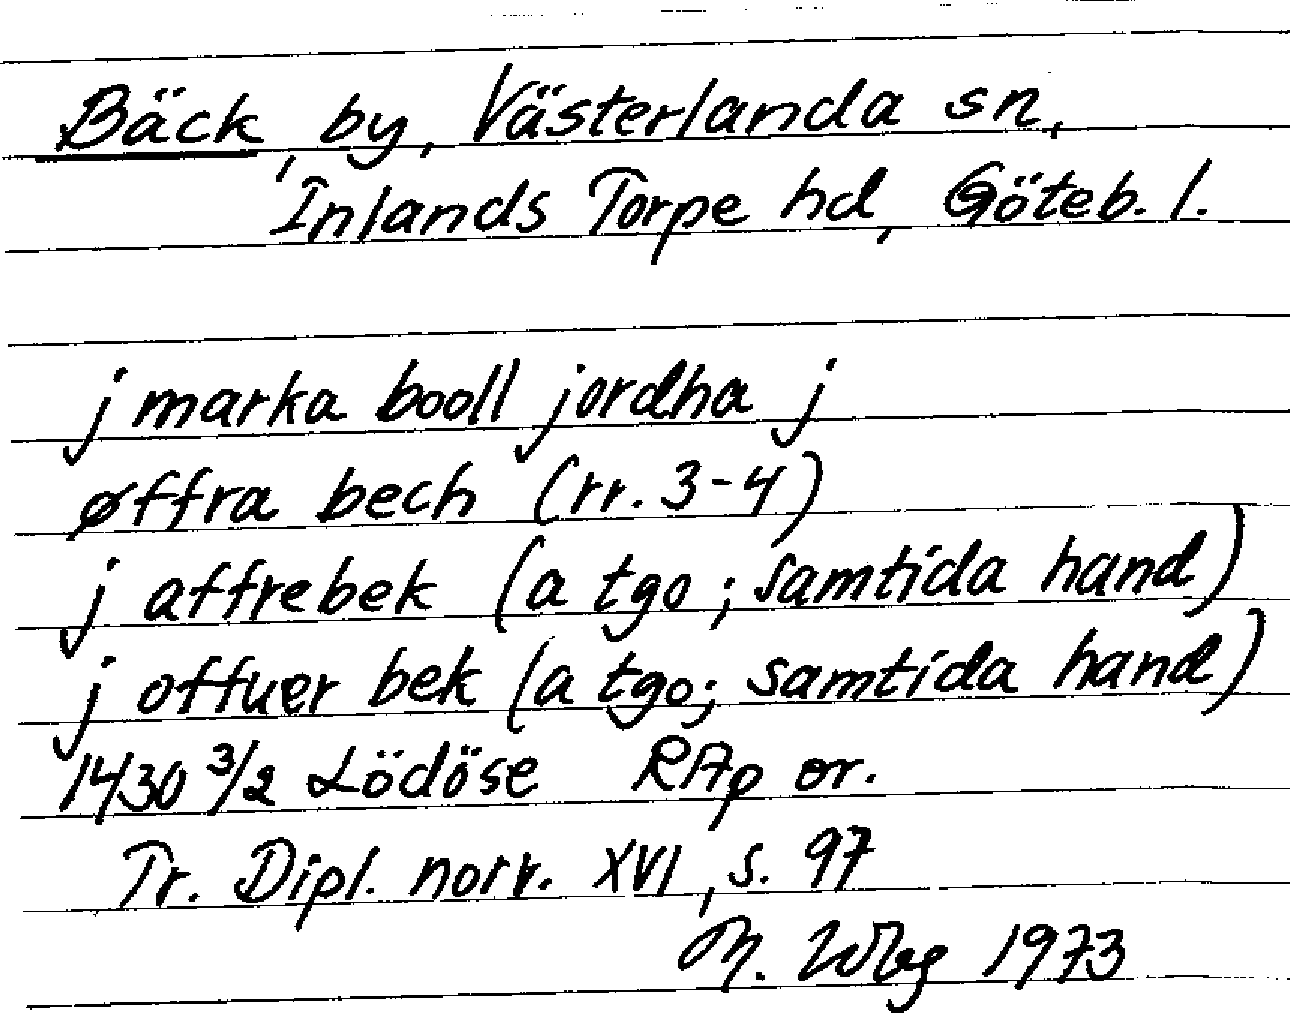 Bäck, by, Västerlanda sn,
Inlands Torpe hd, Göteb. l.
j marka booll jordha j
øffra bech (rr. 3-4)
j affrebek (a tgo; samtida hand)
j offuer bek (a tgo; samtida hand)
1430 3/2 Lödöse RAp or.
Tr. Dipl. norv. XVI, s. 97
M. 1973